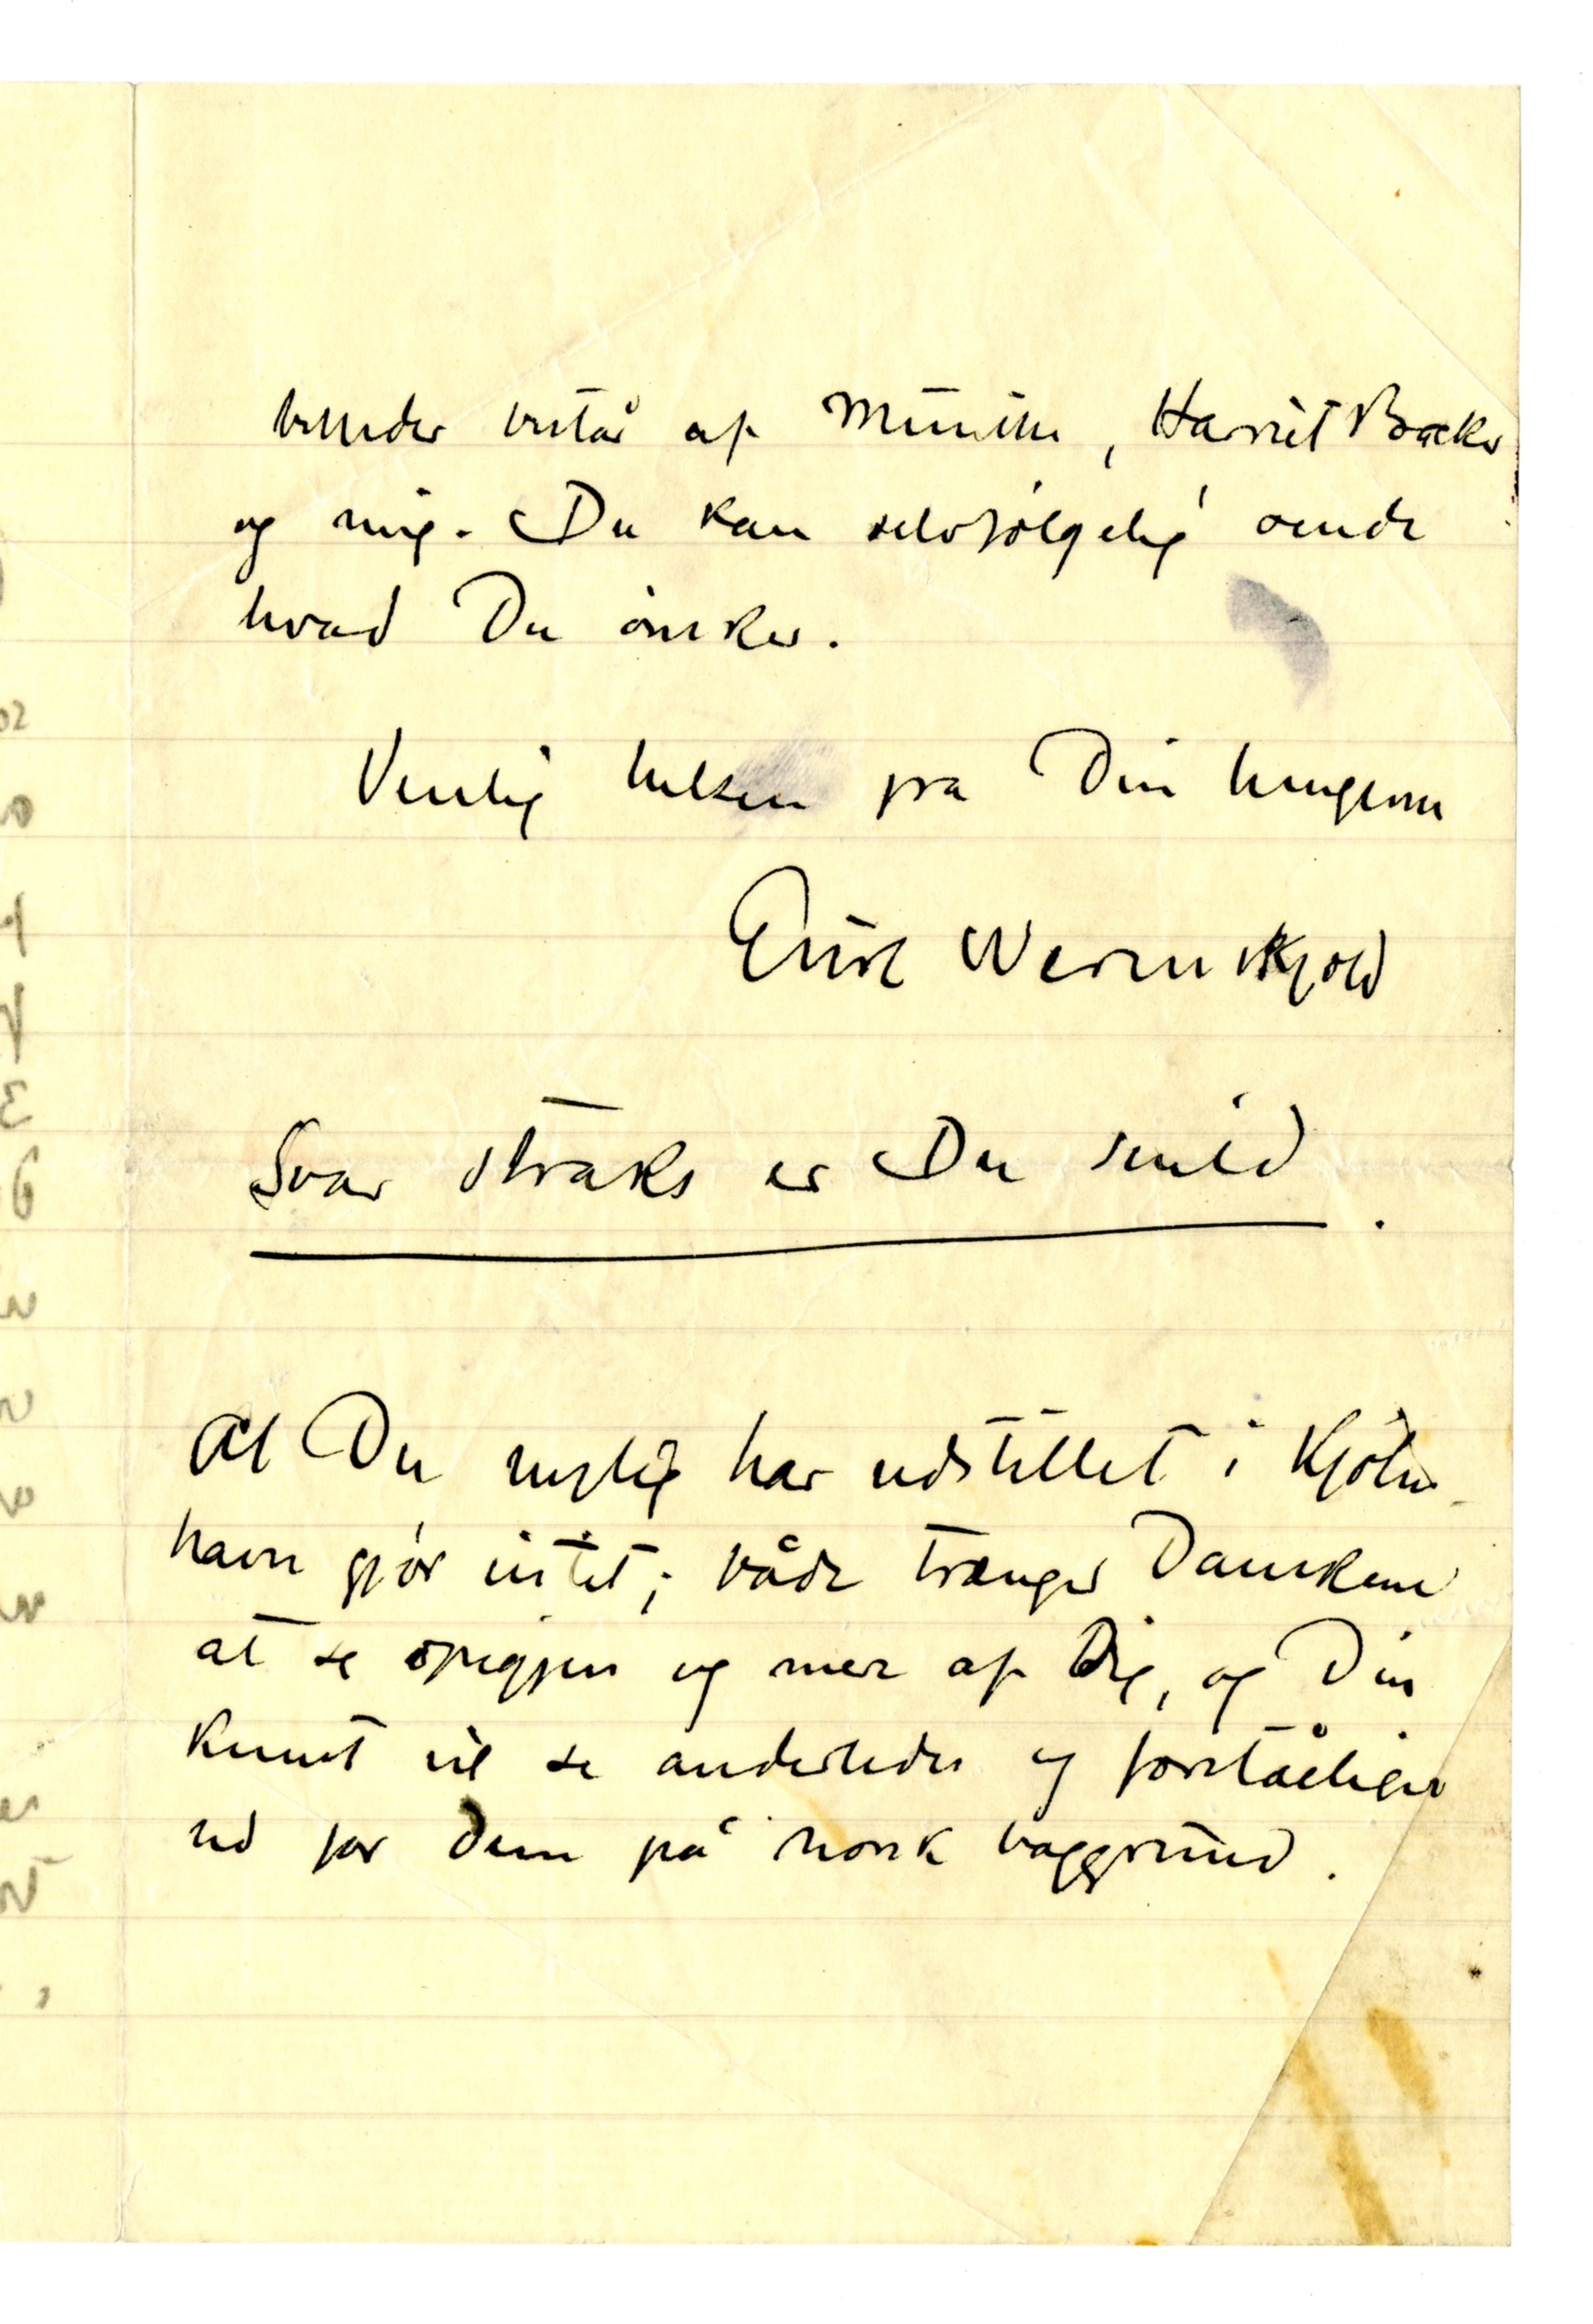 billeder består af Munthe, Harriet Backer
og mig. Du kan selvfølgelig sende
hvad Du ønsker.
Venlig hilsen fra Din hengivne
Erik Werenskjold
Svar straks er Du snild.
At Du nylig har udstillet i Kjøben-
havn gjør intet; både trænger Danskerne
at se opigjen og mer af Dig, og Din
kunst vil se anderledes og forståeligere
ud for dem på norsk baggrund.